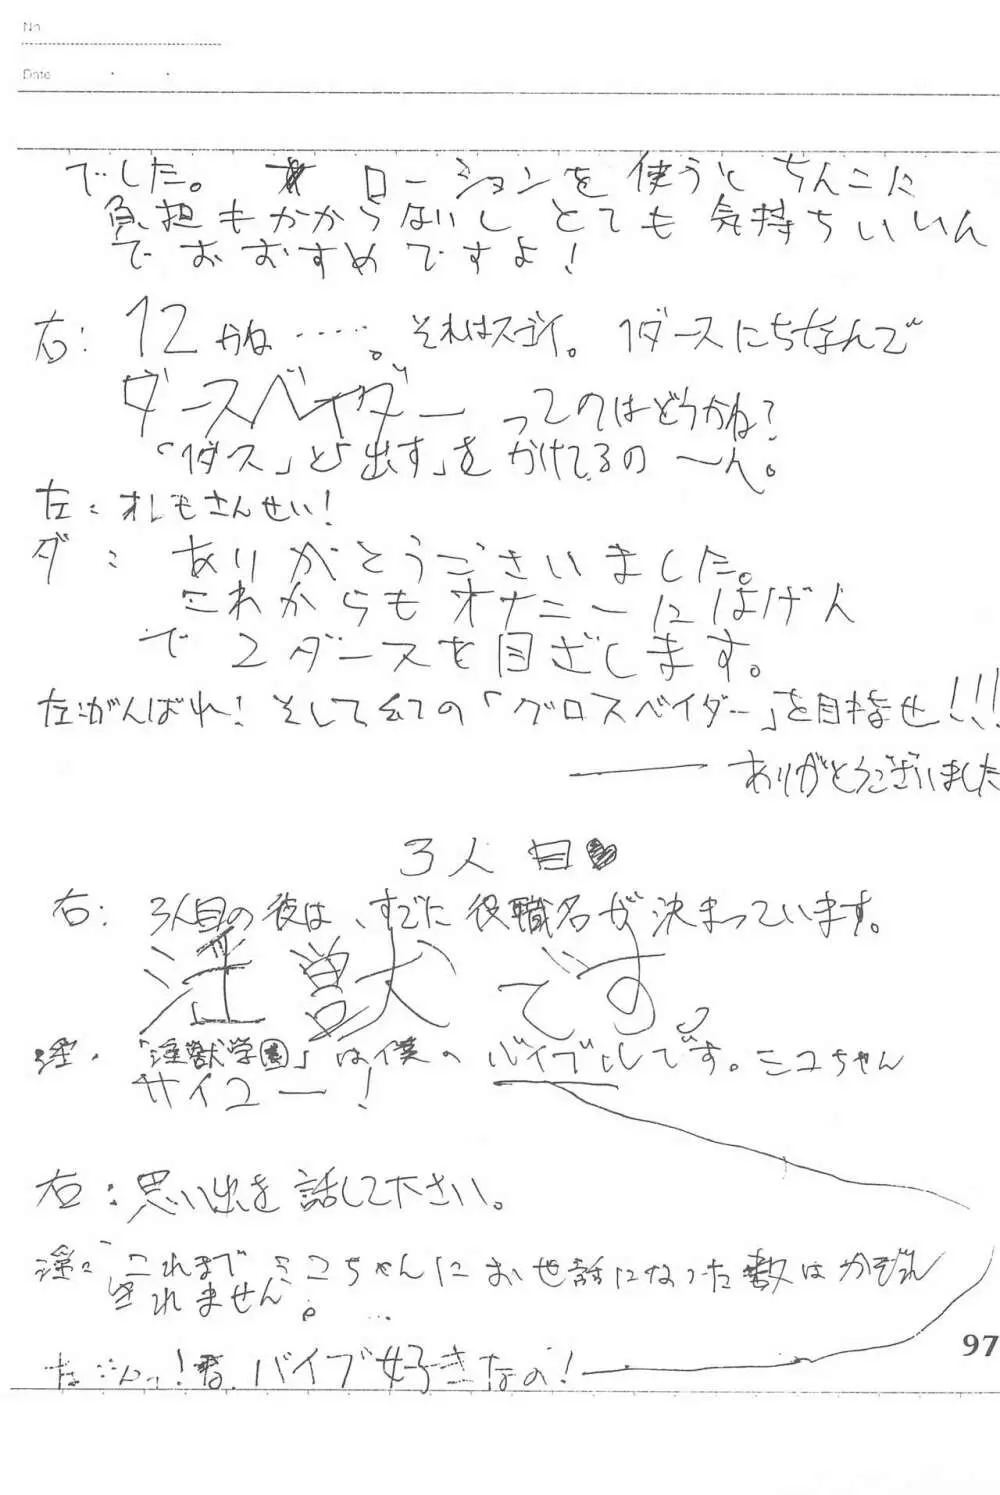 No.
Date
でした。 ローションを使うとちんこに
負担もかからないし とても気持ちいいん
でおおすめですよ!
右: 12かね……。それはスゴイ。1ダースにちなんで
ダースベイダー ってのはどうかね?
「1ダス」と「出す」をかけてるの〜ん。
左:オレもさんせい!
ダ: ありがとうございました。
これからもオナニーにはげん
で2ダースを目ざします。
左:がんばれ!そして全ての「グロスベイダー」を目指せ!!!
―― ありがとうございました
3人目
右: 3人目の彼は、すでに役職名が決まっています。
淫獣です。
淫・「淫獣学園」は僕のバイブルです。ミコちゃん
サイコー!
右:思い出を話して下さい。
淫: これまでミコちゃんにお世話になった数はかぞえ
きれません。…
左:んっ!君、バイブ好きなの!
97